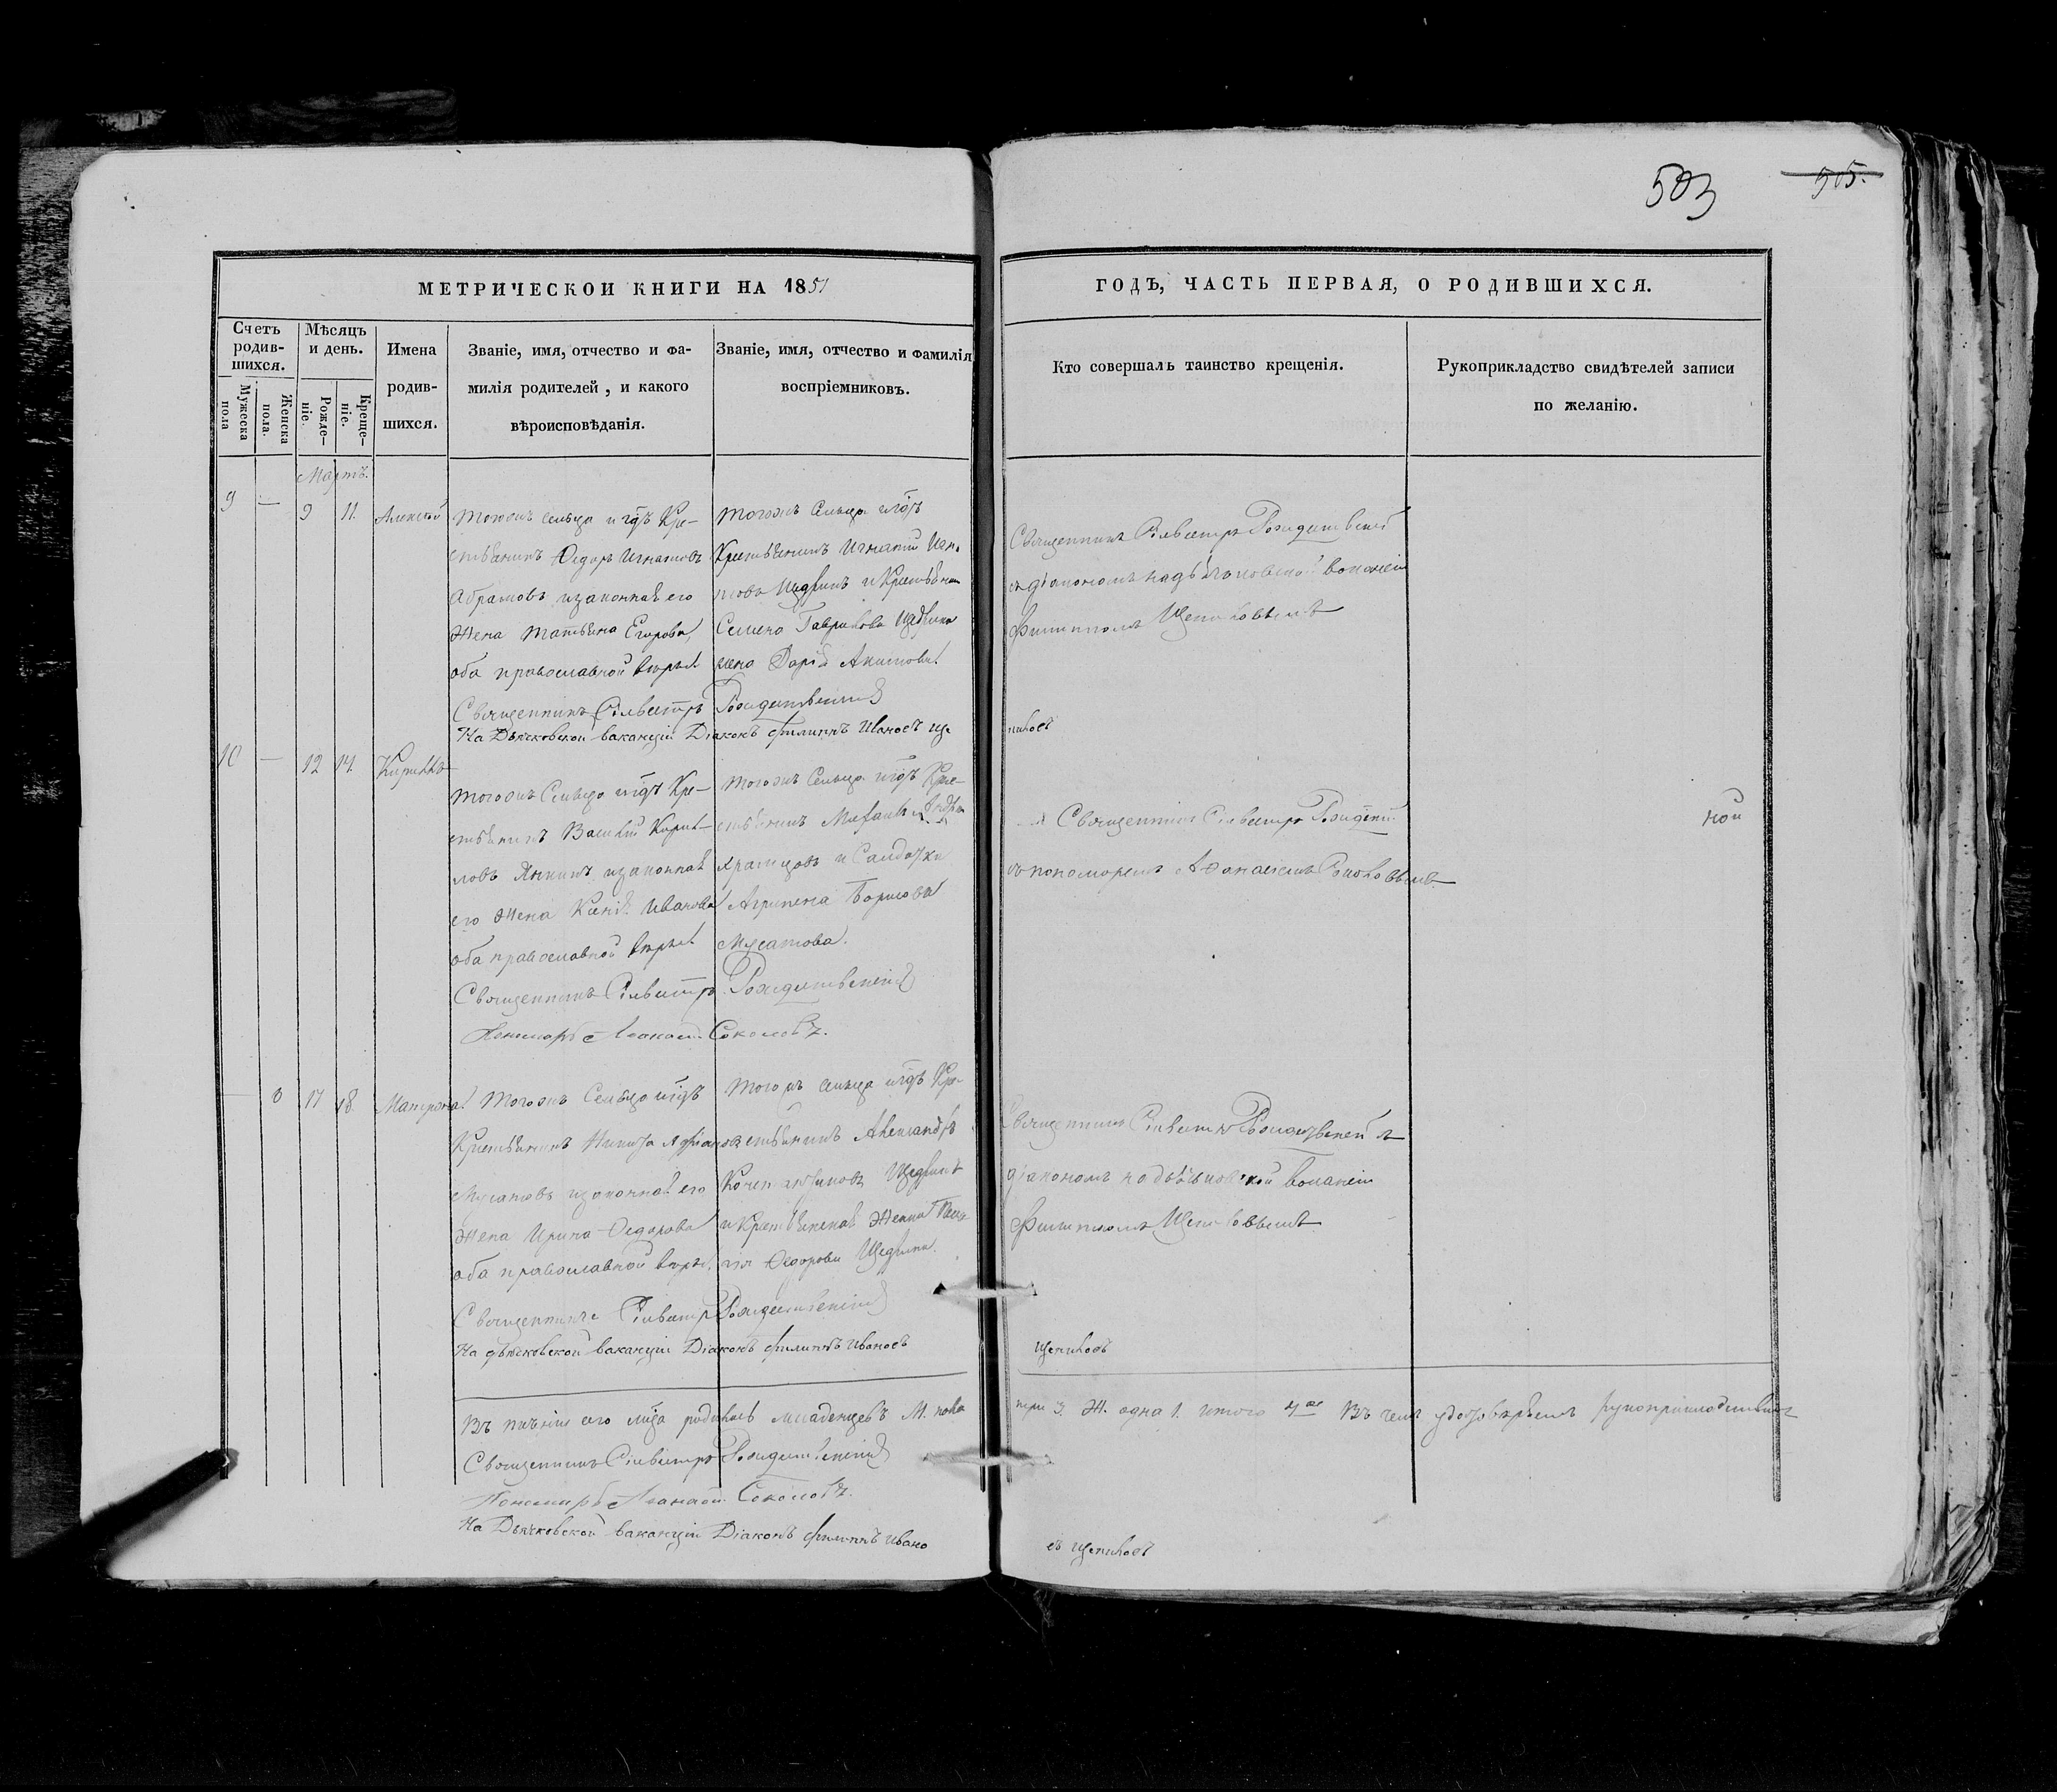 503
505.
МЕТРИЧЕСКОИ КНИГИ НА 1851
ГОДЪ, ЧАСТЬ ПЕРВАЯ, О РОДИВШИХСЯ.
Счетъ родив-шихся.
Мужеска пола
Женска пола.
Мѣсяцъ и день.
Рожде-ніе.
Креще-ніе.
Имена
родив-
шихся.
Званіе, имя, отчество и фа-
милія родителей, и какого
вѣроисповѣданія.
Званіе, имя, отчество и фамилія
воспріемниковъ.
Кто совершалъ таинство крещенія.
Рукоприкладство свидѣтелей записи
по желанію.
Мартъ.
9 — 9 11. Алексѣй
Тогожъ сельца Кре-
стьянинъ Ѳедоръ Игнатовъ
Абрамовъ изаконная его
жена Татьяна Егорова,
оба православной вѣры
Тогожъ Сельца
Крестьянинъ Игнатій
Семена Гаврилова
жена Дарія Акимова
Священникъ Сильвестръ Рождественскій
съ діакономъ
Филиппомъ Щепиловымъ
Священникъ Сильвестръ Рождественскій
На Дьячковской вакансіи Діаконъ Филиппъ Ивановъ Ще
пиловъ
10 — 12 14. Кириллъ
Тогожъ Сельца Кре-
стьянинъ Василій Кирил-
ловъ изаконная
его жена Ксенія Иванова
оба православной вѣры
Тогожъ Сельца Кре-
стьянинъ Михаилъ
и Солдатка
Агрипена Борисова
Мусатова.
Священникъ Сильвестръ
ной
съ пономаремъ Аѳанасіемъ Соколовымъ.
Священникъ Сильвестръ Рождественскій
Пономарь Аѳанасій Соколовъ.
— 8 17 18. Матрона
Тогожъ Сельца
Крестьянинъ Никита
Мусатовъ изаконная его
жена Ирина Ѳедорова
оба православной вѣры
Тогожъ сельца Кре-
стьянинъ Александръ
Константиновъ
и Крестьянская жена
Ѳедорова
Священникъ Сильвестръ Рождественскій съ
діакономъ вакансіи
Филиппомъ Щепиловымъ
Священникъ Сильвестръ Рождественскій
На дьячковской вакансіи Діаконъ Филиппъ Ивановъ
Щепиловъ
Въ теченіи сего м-ца родилось младенцевъ М. пола
три 3. Ж. одна 1. итого 4-ре Въ чемъ удостовѣряемъ рукоприкладствомъ
Священникъ Сильвестръ Рождественскій
Пономарь Аѳанасій Соколовъ.
На Дьячковской вакансіи Діаконъ Филиппъ Ивано
въ Щепиловъ